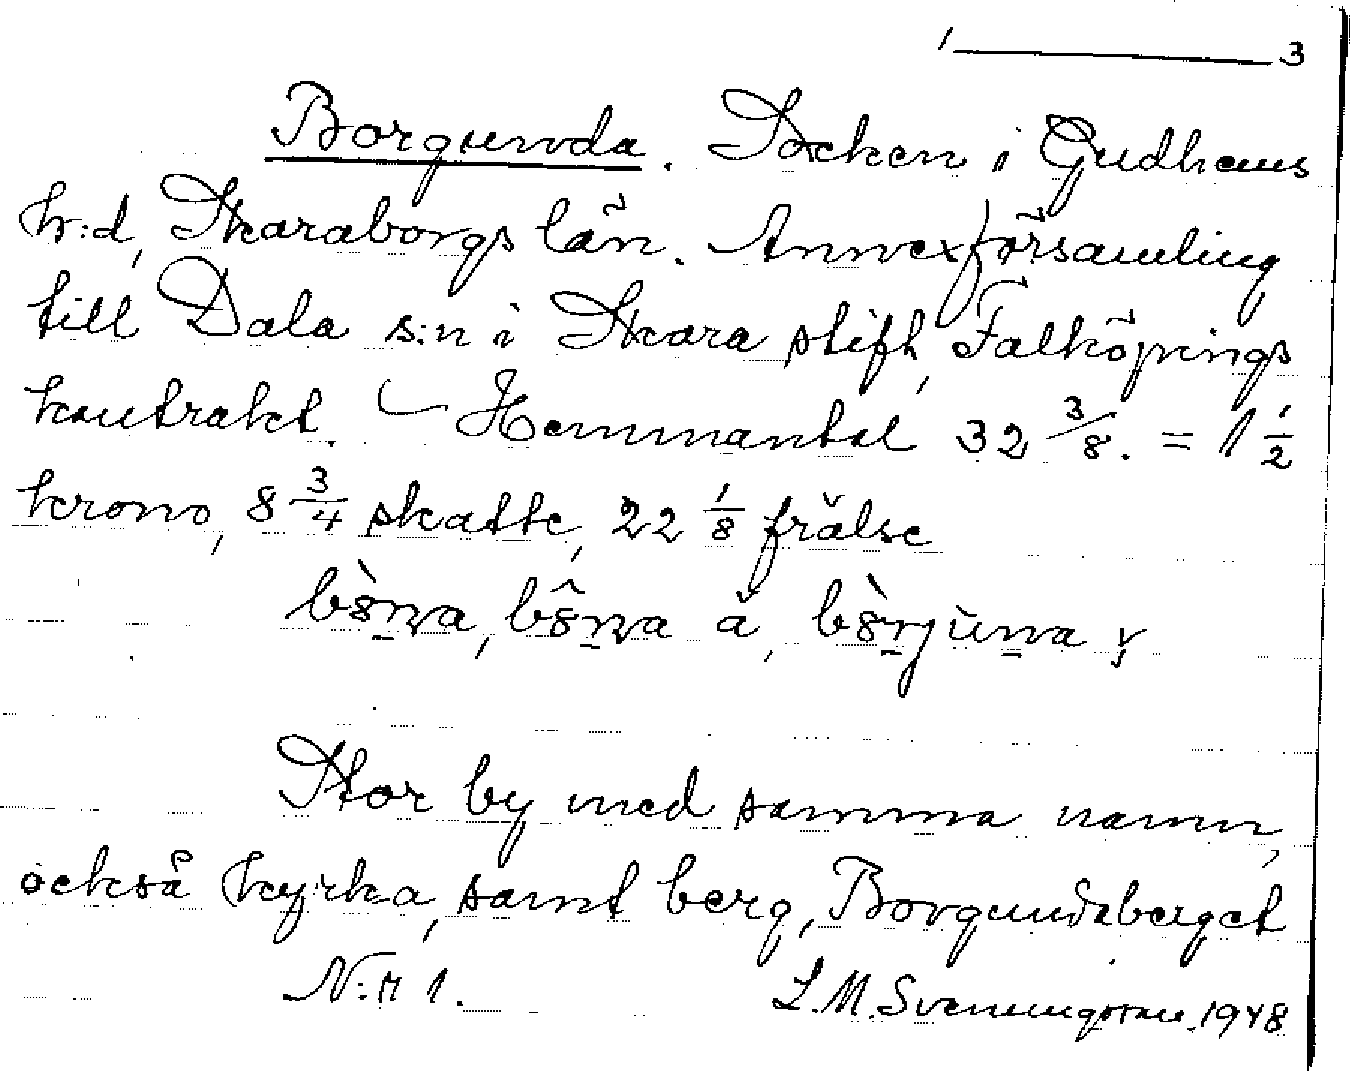 1 ——— 3
Borgunda. Socken i Gudhems
h:d, Skaraborgs län. Annexförsamling
till Dala s:n i Skara stift, Falköpings
kontrakt. — Hemmantal 32 3/8. = 1 1/2
krono, 8 3/4 skatte, 22 1/8 frälse
Stor by med samma namn,
också kyrka, samt berg, Borgundaberget
N:r 1. L.M. Svenungsson. 1948